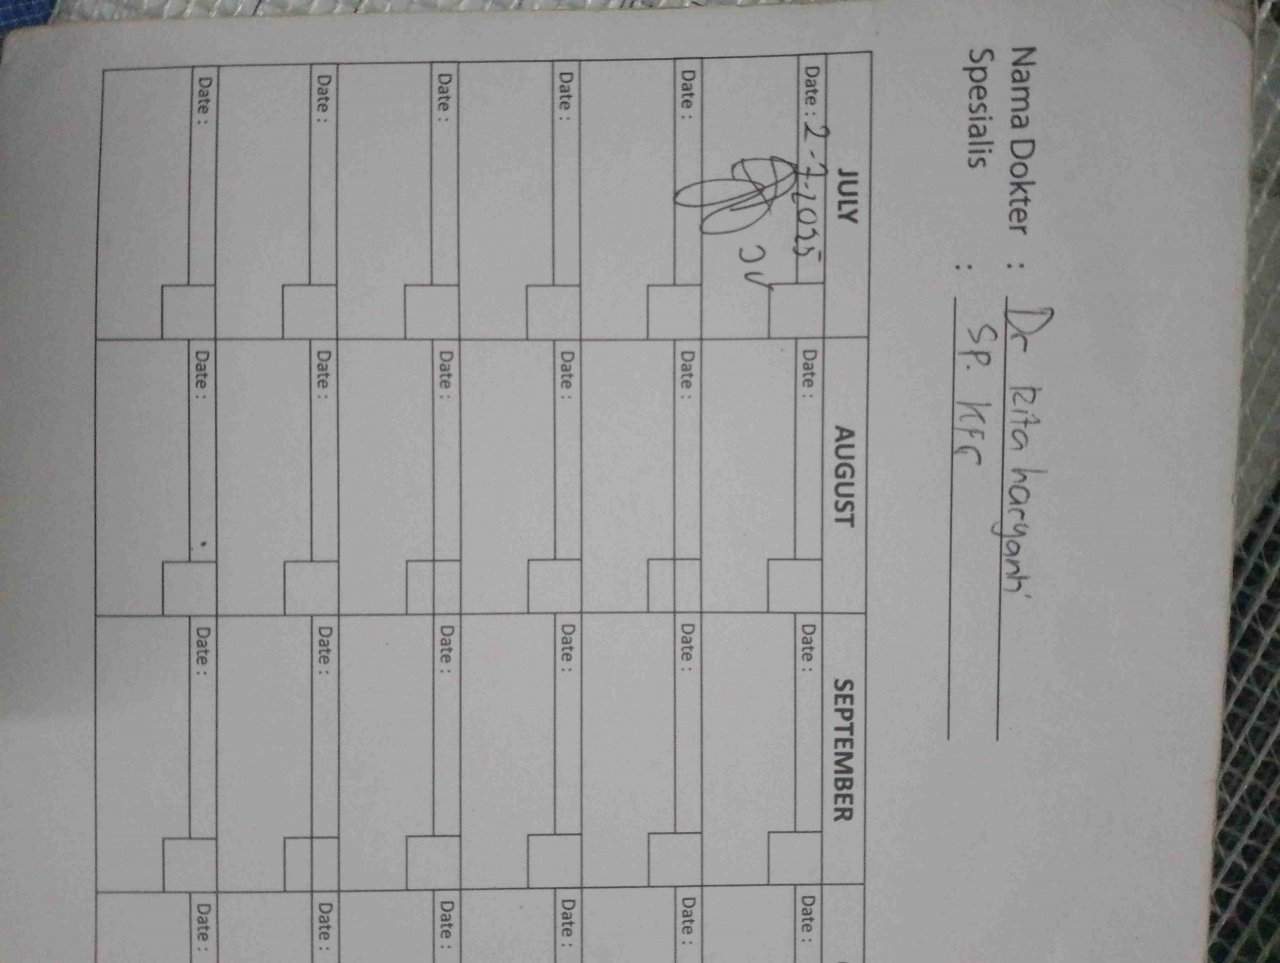 Nama Dokter : Dr Rita haryanti
Spesialis : Sp. KFR
JULY AUGUST SEPTEMBER
Date : 2-7-2025 Date : Date : Date :
Date : Date : Date : Date :
Date : Date : Date : Date :
Date : Date : Date : Date :
Date : Date : Date : Date :
Date : Date : Date : Date :